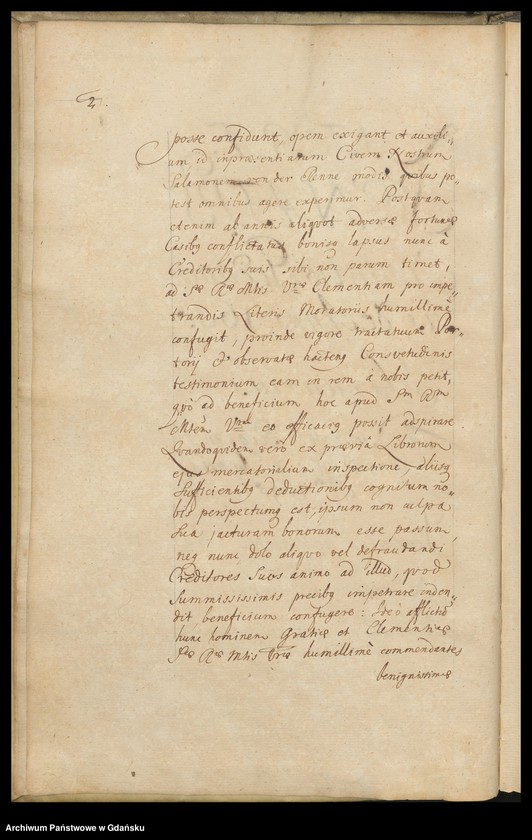 2.
posse confidunt, opem exigant et auxili„
um, id inpræsentiarum Civem Nostrum
Salamonem von der Renne modis quibus po„
test omnibus agere experimur. Postquam
etenim ab annis aliquot adversæ fortunæ
Casibq conflictatus bonisq lapsus nunc à
Creditoribq suis sibi non parum timet,
ad Sæ Ræ Mtis Vræ Clementiam pro impe„
trandis Literis Moratoriis humillimè
confugit, proinde vigore tractatuum Por„
torij et observatæ hacteng Consvetudinis
testimonium eam in rem à nobis petit,
quò ad beneficium hoc apud Sm Rm
Mtem Vram eo efficaciq possit adspirare
Quandoquidem verò ex præviâ Librorum
ejus mercatorialium inspectione, aliisq
sufficientibq deductionibq cognitum no„
bis perspectumq est, ipsum non culpa
sua jacturam bonorum esse passum,
neq nunc dolo aliquo vel defraudandi
Creditores suos animo ad illud, quod
summississimis precibq impetrare inten„
dit beneficium confugere: Ideò afflictū
hunc hominem Gratiæ et Clementiæ
Sæ Ræ Mtis Vræ humillimè commendantes
benignissimæ
Archiwum Państwowe w Gdańsku